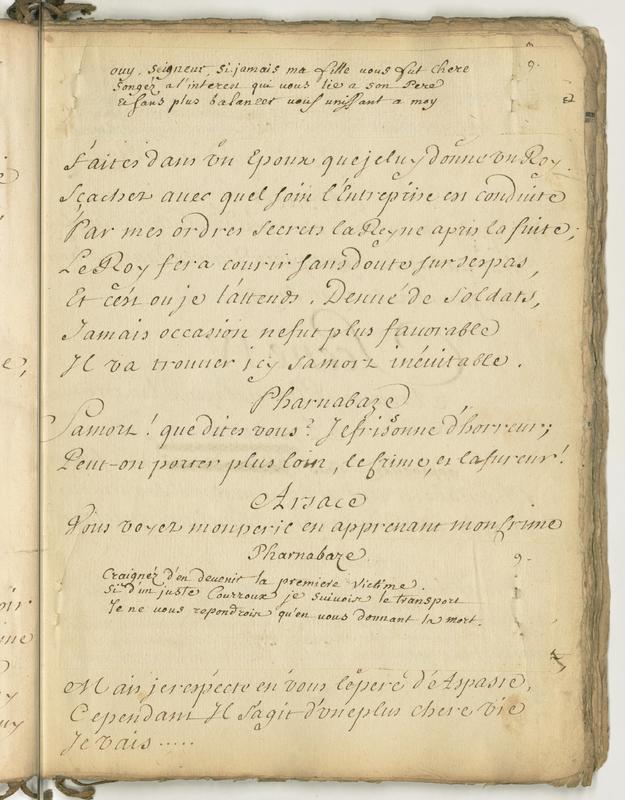 ouy, Seigneur, si jamais ma fille vous fut chere
Songez a l'interest qui vous lie a son Pere
Et sans plus balancer vous unissant a moy
9.
Faites dans un Epoux que je luy donne un Roy.
Sçachez avec quel soin l'Entreprise est conduite
Par mes ordres secrets la Reyne apris la fuite;
Le Roy fera courir sans doute sur ses pas,
Et c'est ou je l'attends. Denué de Soldats,
Jamais occasion ne fut plus favorable
Il va trouver icy sa mort inévitable.
Pharnabaze
Sa mort! que dites vous? Je frissonne d'horreur;
Peut-on porter plus loin, le Crime, et la fureur!
Arsace
Vous voyez mon peril en apprenant mon Crime
Pharnabaze.
9.
Craignez d'en devenir la premiere Victime.
Si d'un juste Courroux je suivois le transport
Je ne vous repondrois qu'en vous donnant la mort.
Mais je respecte en vous le pere d'Aspasie,
Cependant Il s'agit d'une plus chere vie
Je vais .....